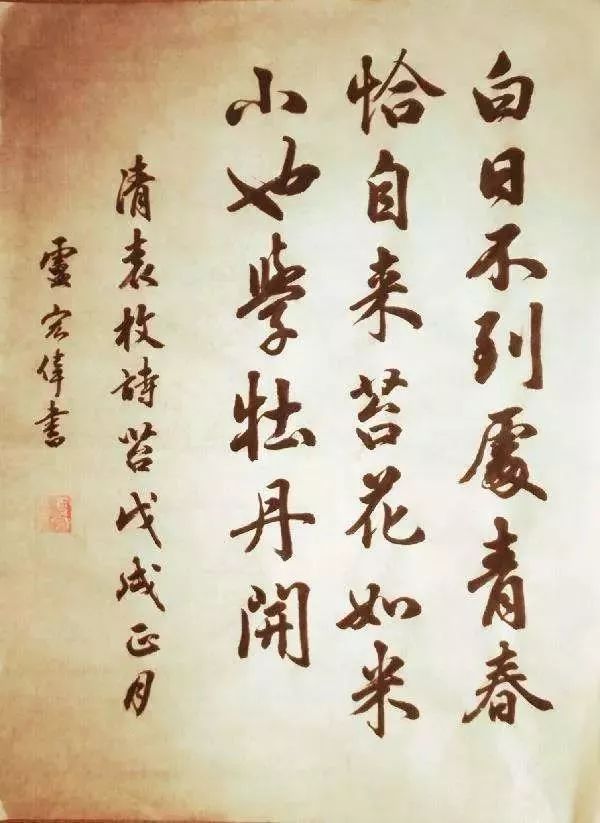 白日不到處青春
恰自来苔花如米
小也學牡丹開
清袁枚詩苔戊戌正月
宏偉書